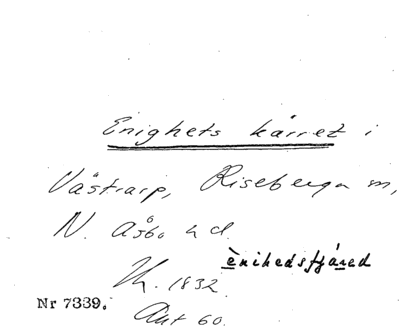 Enighets kärret i
Västrarp, Riseberga sn,
N. Åsbo hd.
ènihedsfjáred
Uk. 1832.
Nr 7339.
Akt 60.